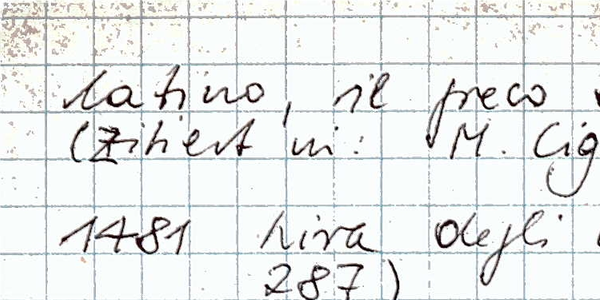 latino, il greco
(Zitiert in: M. Cig
1481 Lira degli
287)